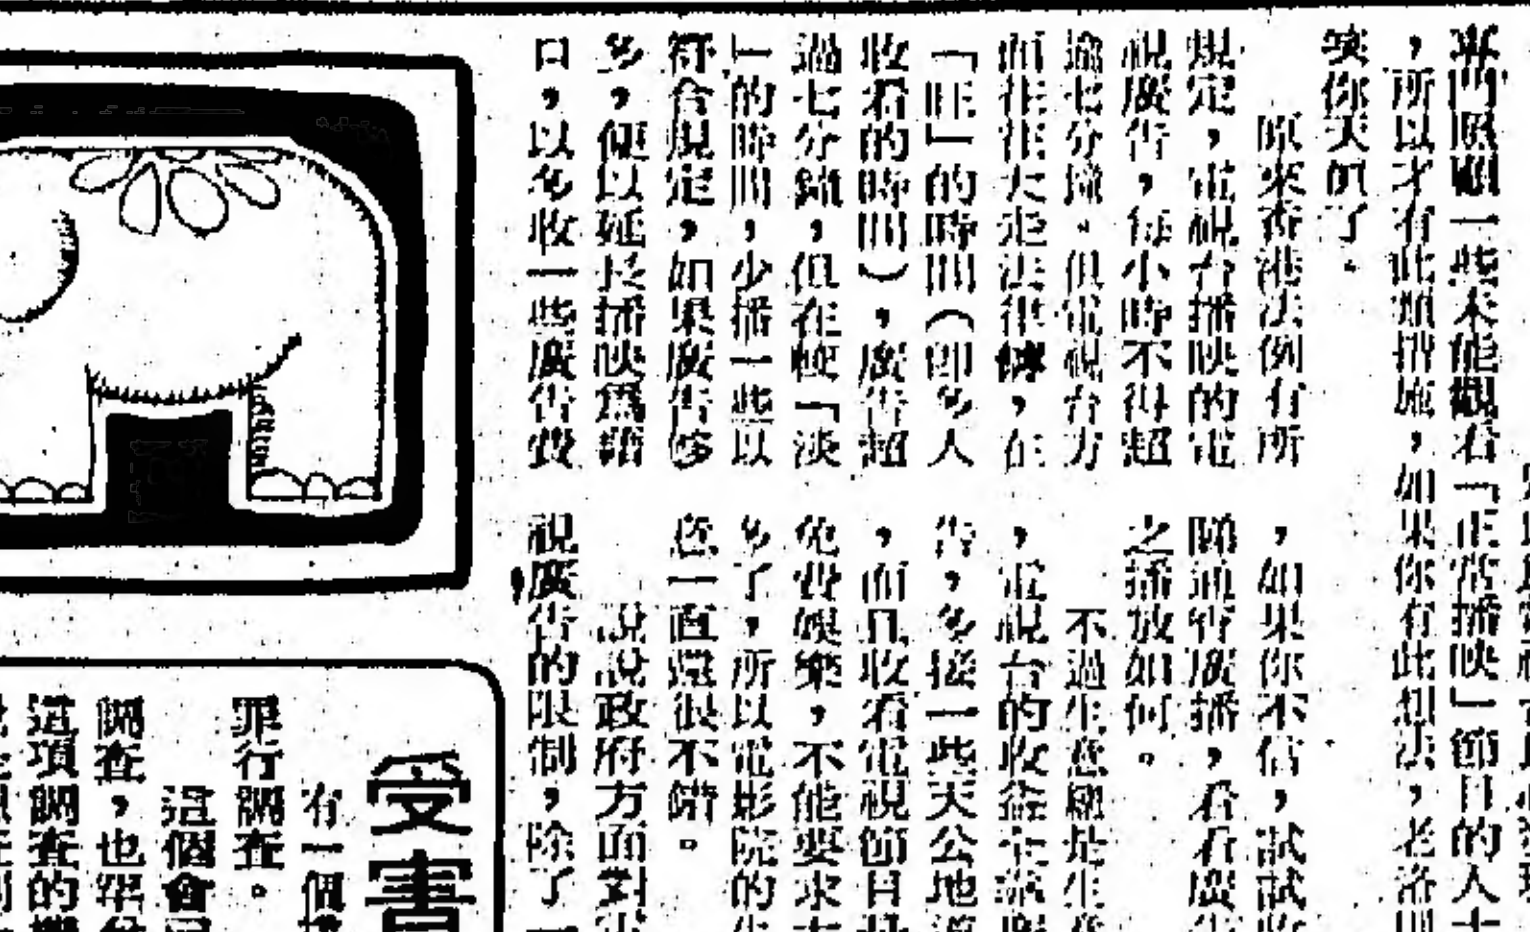 專門照顧一些未能觀看「正常播映」節目的人士
，所以才有此類措施，如果你有此想法，老洛則
笑你天眞了。
原來香港法例有所
規定，電視台播映的電
視廣告，每小時不得超
逾七分鐘。但電視台方
面往往大走法律罅，在
「旺」的時間（卽多人
收看的時間），廣告超
過七分鐘，但在較「淡
」的時間，少播一些以
符合規定，如果廣告够
多，便以延長播映爲藉
口，以多收一些廣告費
，如果你不信，試試收
睇通宵廣播，看看廣告
之播放如何。
不過生意總是生意
，電視台的收益全靠廣
告，多接一些天公地道
，而且收看電視節目是
免費娛樂，不能要求太
多了，所以電影院的生
意一直還很不錯。
說說政府方面對電
視廣告的限制，除了一
受害
有一個
罪行調查。
這個會
調查，也罕
這項調查的